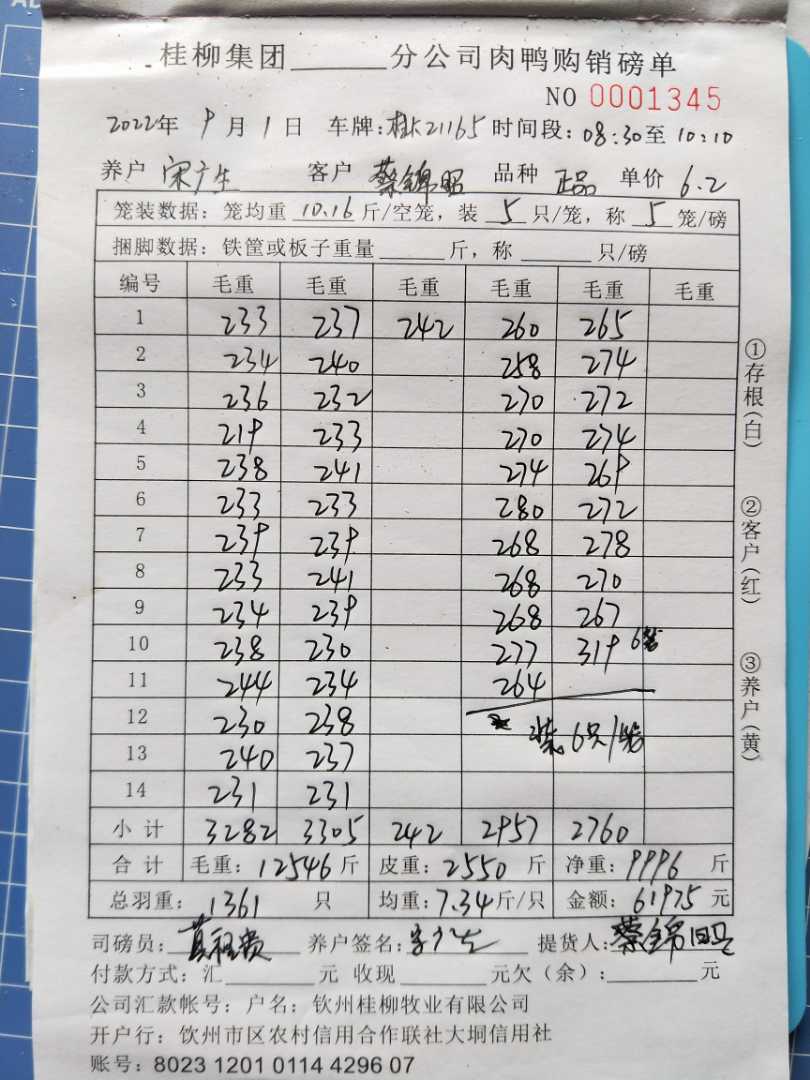 桂柳集团______分公司肉鸭购销磅单
NO 0001345
2022年 9月1日 车牌:桂K21165 时间段:08:30至10:10
养户 宋广生 客户 蔡锦昭 品种 正品 单价 6.2
笼装数据:笼均重 10.16 斤/空笼,装 5 只/笼,称 5 笼/磅
捆脚数据:铁筐或板子重量______斤,称______只/磅
编号 毛重 毛重 毛重 毛重 毛重 毛重
1 233 237 242 260 265
2 234 240 258 274
3 236 232 270 272
4 219 233 270 274
5 238 241 274 269
6 233 233 280 272
7 239 239 268 278
8 233 241 268 270
9 234 239 268 267
10 238 230 277 319 6笼
11 244 234 264
12 230 238 装6只/笼
13 240 237
14 231 231
小计 3282 3305 242 2957 2760
合计 毛重:12546斤 皮重:2550斤 净重:9996斤
总羽重:1361只 均重:7.34斤/只 金额:61975元
司磅员: 养户签名: 提货人:蔡锦昭
付款方式:汇______元 收现______元欠(余):______元
公司汇款帐号:户名:钦州桂柳牧业有限公司
开户行:钦州市区农村信用合作联社大垌信用社
账号:8023 1201 0114 4296 07
①存根(白)
②客户(红)
③养户(黄)